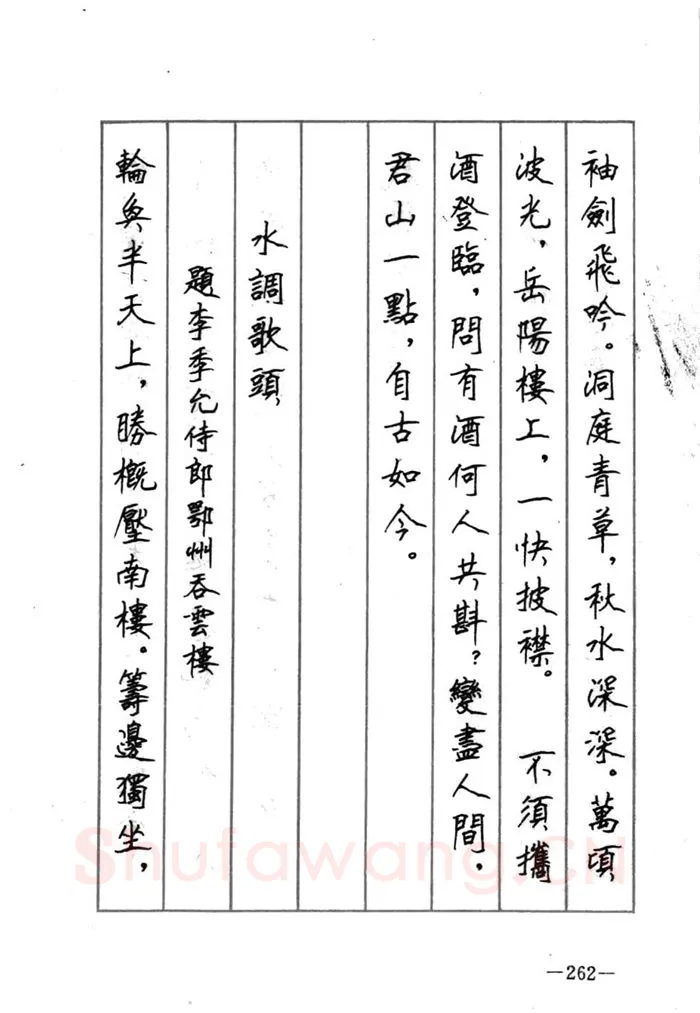 袖劍飛吟。洞庭青草，秋水深深。萬頃
波光，岳陽樓上，一快披襟。　不須攜
酒登臨，問有酒何人共斟？變盡人間，
君山一點，自古如今。
水調歌頭
題李季允侍郎鄂州吞雲樓
輪奐半天上，勝概壓南樓。籌邊獨坐，
Shufawang.CN
—262—